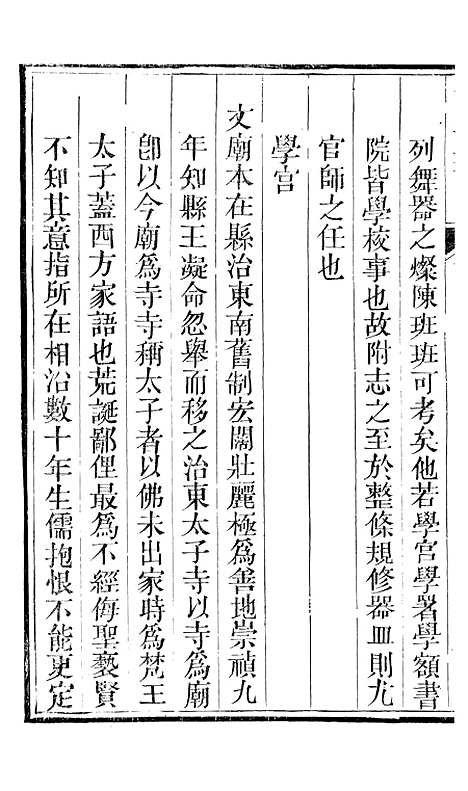 列舞器之燦陳班班可考矣他若學宫學署學額書
院皆學校事也故附志之至於整條規修器皿則尤
官師之任也
學宫
文廟本在縣治東南舊制宏闊壯麗極爲善地崇禎九
年知縣王凝命忽舉而移之治東太子寺以寺爲廟
卽以今廟爲寺寺稱太子者以佛未出家時爲梵王
太子蓋西方家語也荒誕鄙俚最爲不經侮聖褻賢
不知其意指所在相沿數十年生儒抱恨不能更定